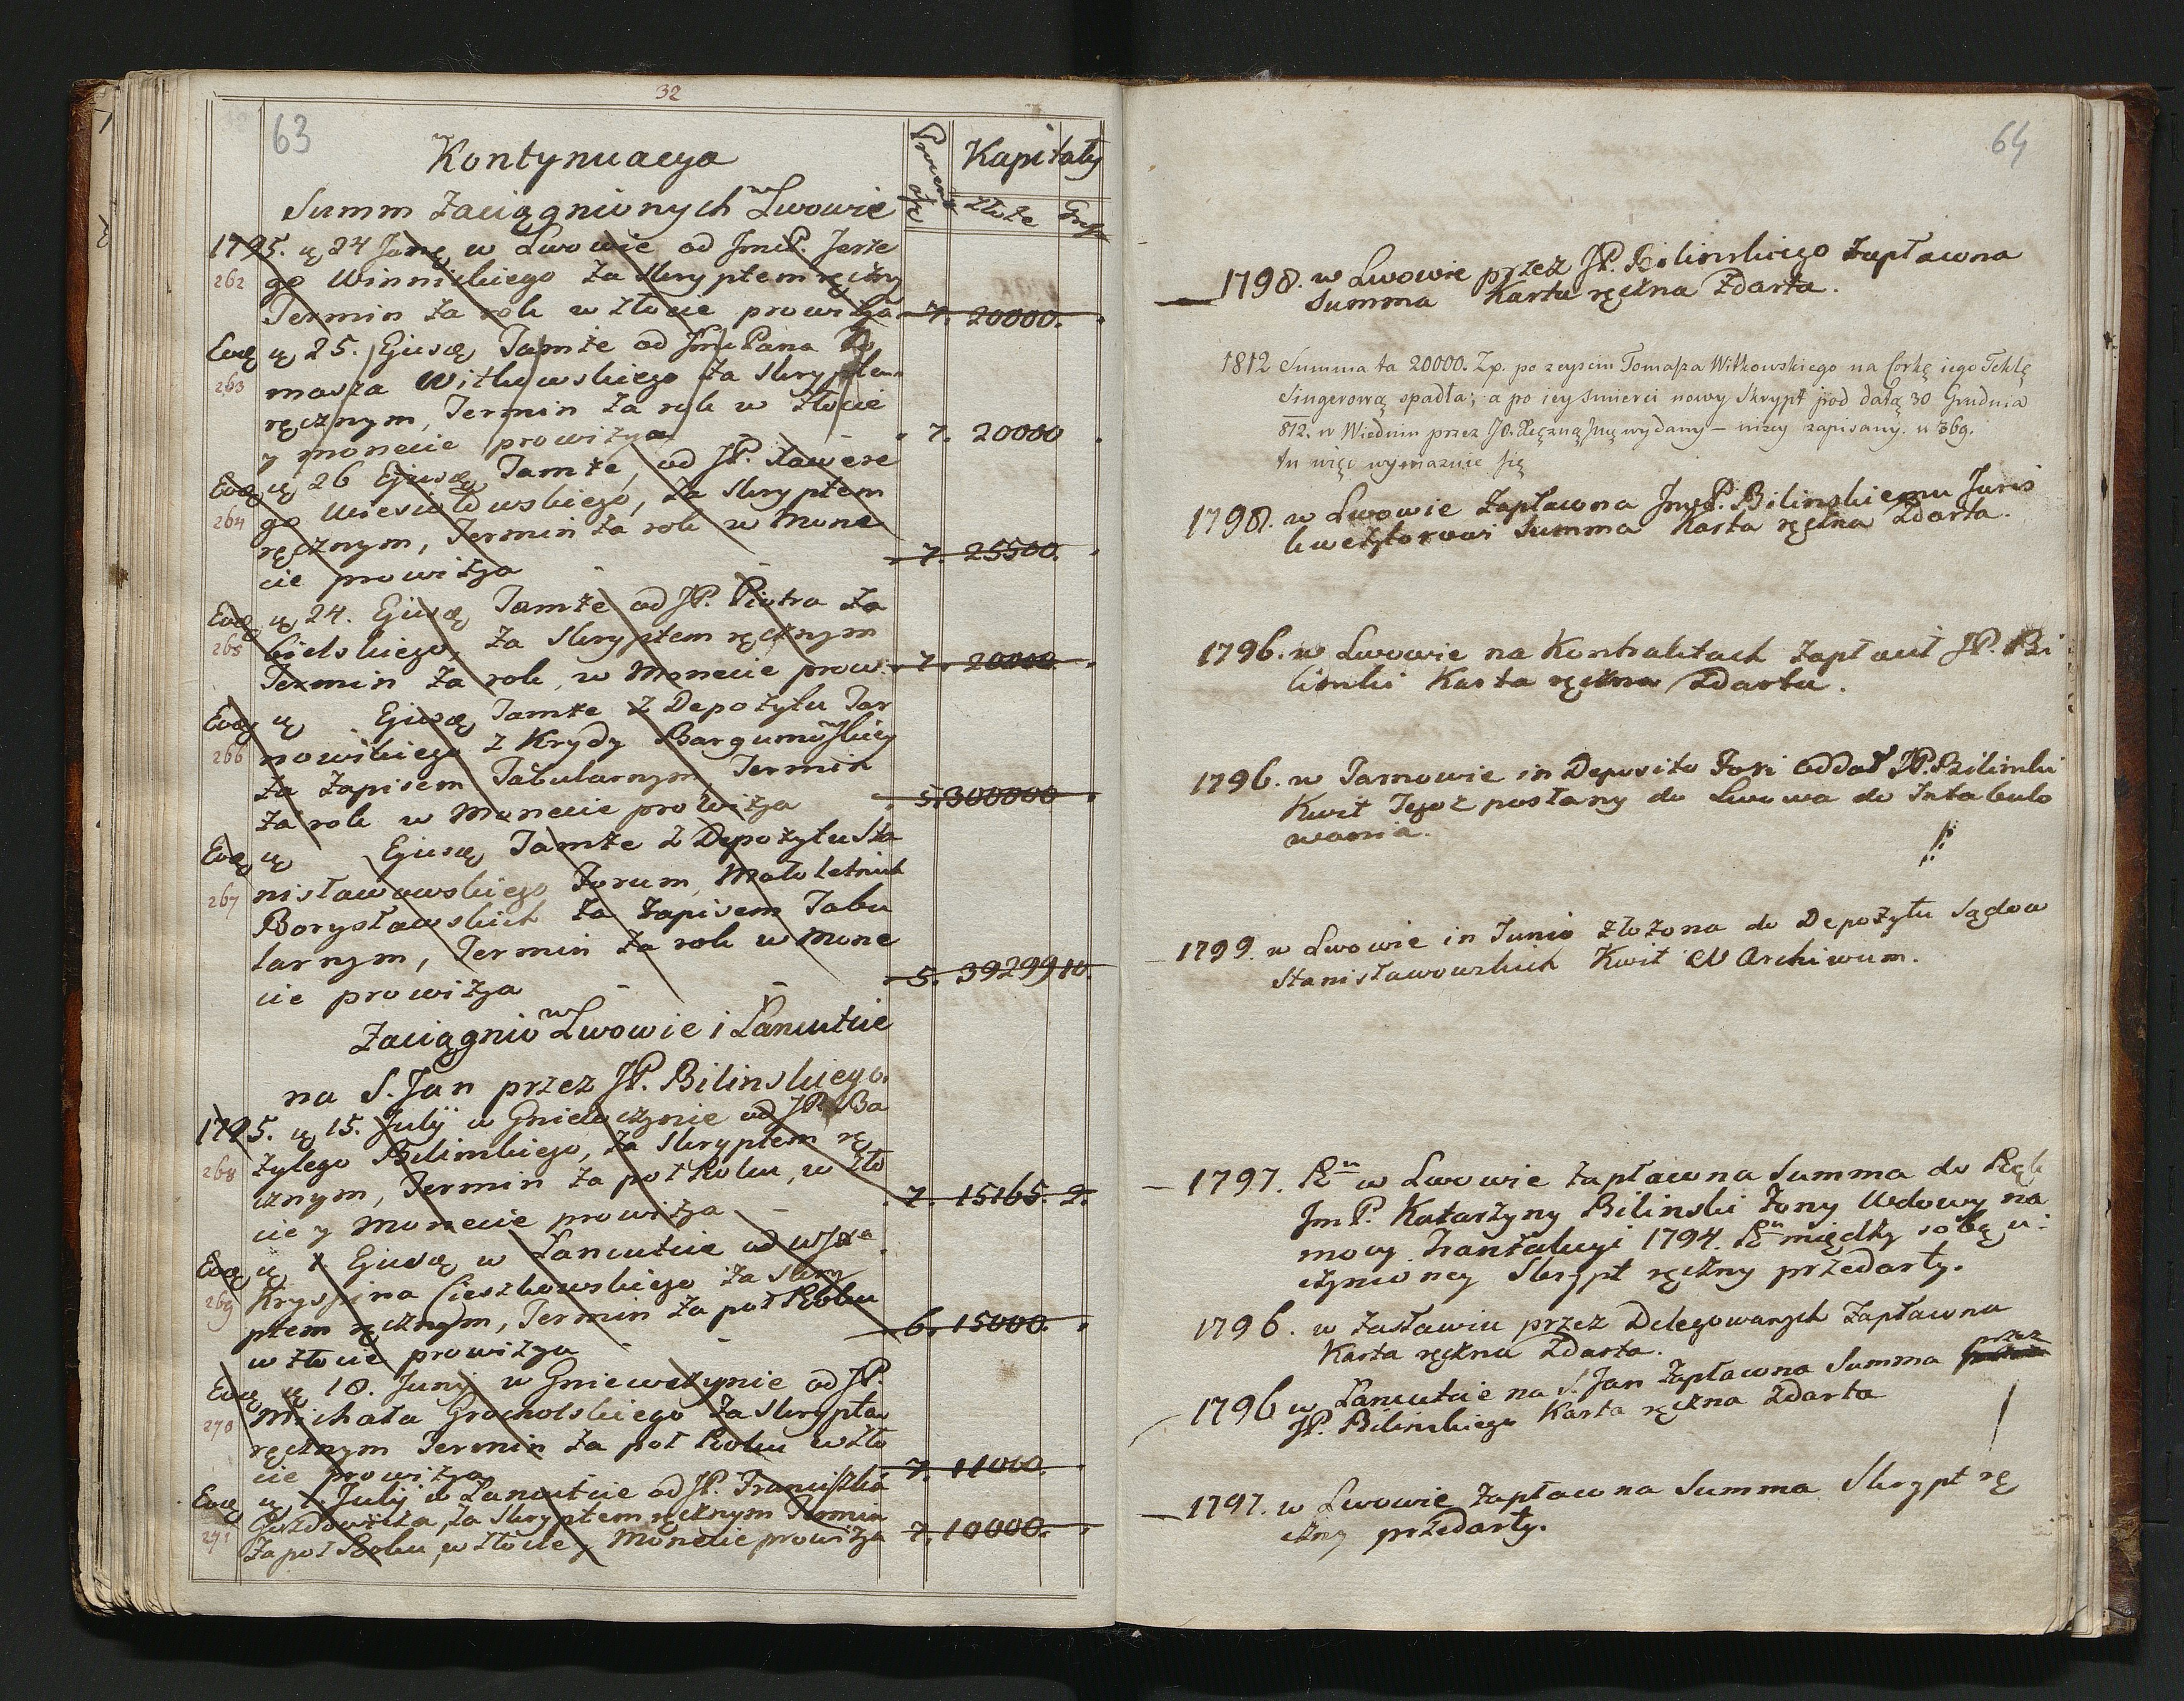 32
63
Kontynuacya
Summ Zaciągnionych w Lwowie
Procenta
Kapitały
Złote
Grosze
1795. 24 Janę w Lwowie od JmcP. Jerze
262 go Winnickiego za Skryptem ręczny
Termin za rok w Złocie prowizya 7. 20000.
Eodę 25. Ejusdę Tamże od Jmć Pana To
263 masza Witkowskiego za Skryptem
ręcznym, Termin za rok w Złocie
y monecie prowizya 7. 20000
Eodę 26 Ejusdę Tamże, od JP. Xawere
264 go Wiesiołowskiego, za Skryptem
ręcznym, Termin za rok w Mone
cie prowizya 7. 25500.
Eodę 24. Ejusdę Tamże od JP. Piotra Za
265 bielskiego, za Skryptem ręcznym
Termin za rok, w Monecie prow: 7. 20000.
Eodę Ejusdę Tamże z Depozytu Tar
266 nowskiego z Krydy
za Zapisem Tabularnym Termin
za rok w Monecie prowizya 5. 300000
Eodę Ejusdę Tamże z Depozytu Sta
267 nisławowskiego Forum, Małoletnich
Borysławskich za zapisem Tabu
larnym, Termin za rok w Mone
cie prowizya 5. 39299 10.
Zaciągnio w Lwowie i Łancutcie
na S. Jan przez JP. Bilinskiego.
1795. 15. Julij w Gniewczynie od JP. Ba
268 zylego Bilinskiego, za Skryptem rę
cznym, Termin za poł Roku, w Zło
cie y Monecie prowizya 7. 15165. 2.
Eodę 1. Ejusdę w Łancutcie od
269 Kryspina Cieszkowskiego za Skry
ptem ręcznym, Termin za poł Roku
w złocie prowizya 6. 15000.
Eodę 18. Junij w Gniewczynie od JP.
270 Michała Grocholskiego za Skryptem
ręcznym Termin za poł Roku w Zło
cie prowizya 7. 11000.
Eodę 1. Julij w Łancutcie od JP. Franciszka
271 Gozdowicza, za Skryptem ręcznym Termin
za poł Roku, w Złocie y Monecie prowizya 7. 10000.
64
1798. w Lwowie przez JP. Bilinskiego Zapłacona
Summa Karta ręczna Zdarta.
1812 Summa ta 20000. Zp. po zeysciu Tomasza Witkowskiego na Corkę iego Teklę
Singerową spadła; a po iey smierci nowy Skrypt pod datą 30 Grudnia
812. w Wiedniu przez JO. Xiężnę Jmć wydany – niżey zapisany. u 369.
tu więc wymazuie się
1798. w Lwowie Zapłacona JmcP. Bilinskiemu Juris
kwezytorowi Summa Karta ręczna Zdarta.
1796. w Lwowie na Kontraktach Zapłacił JP. Bi
linski Karta ręczna Zdarta.
1796. w Tarnowie in Deposito Fori oddał JP. Bilinski
Kwit Tegoż posłany do Lwowa do Intabulo
wania.
1799. w Lwowie in Junio złożona do Depozytu Sądow
Stanisławowskich Kwit w Archiwum.
1797. Ru w Lwowie Zapłacona Summa do Rąk
JmP. Katarzyny Bilinski Żony Wdowy na
mocy Tranzakcyi 1794. Ru między sobą u:
czynioney Skrypt ręczny przedarty.
1796. w Zasławiu przez Delegowanych Zapłacona
Karta ręczna Zdarta.
1796 w Łancutcie na S. Jan Zapłacona Summa przez
JP. Bilinskiego Karta ręczna Zdarta
1797. w Lwowie Zapłacona Summa Skrypt rę
czny przedarty.